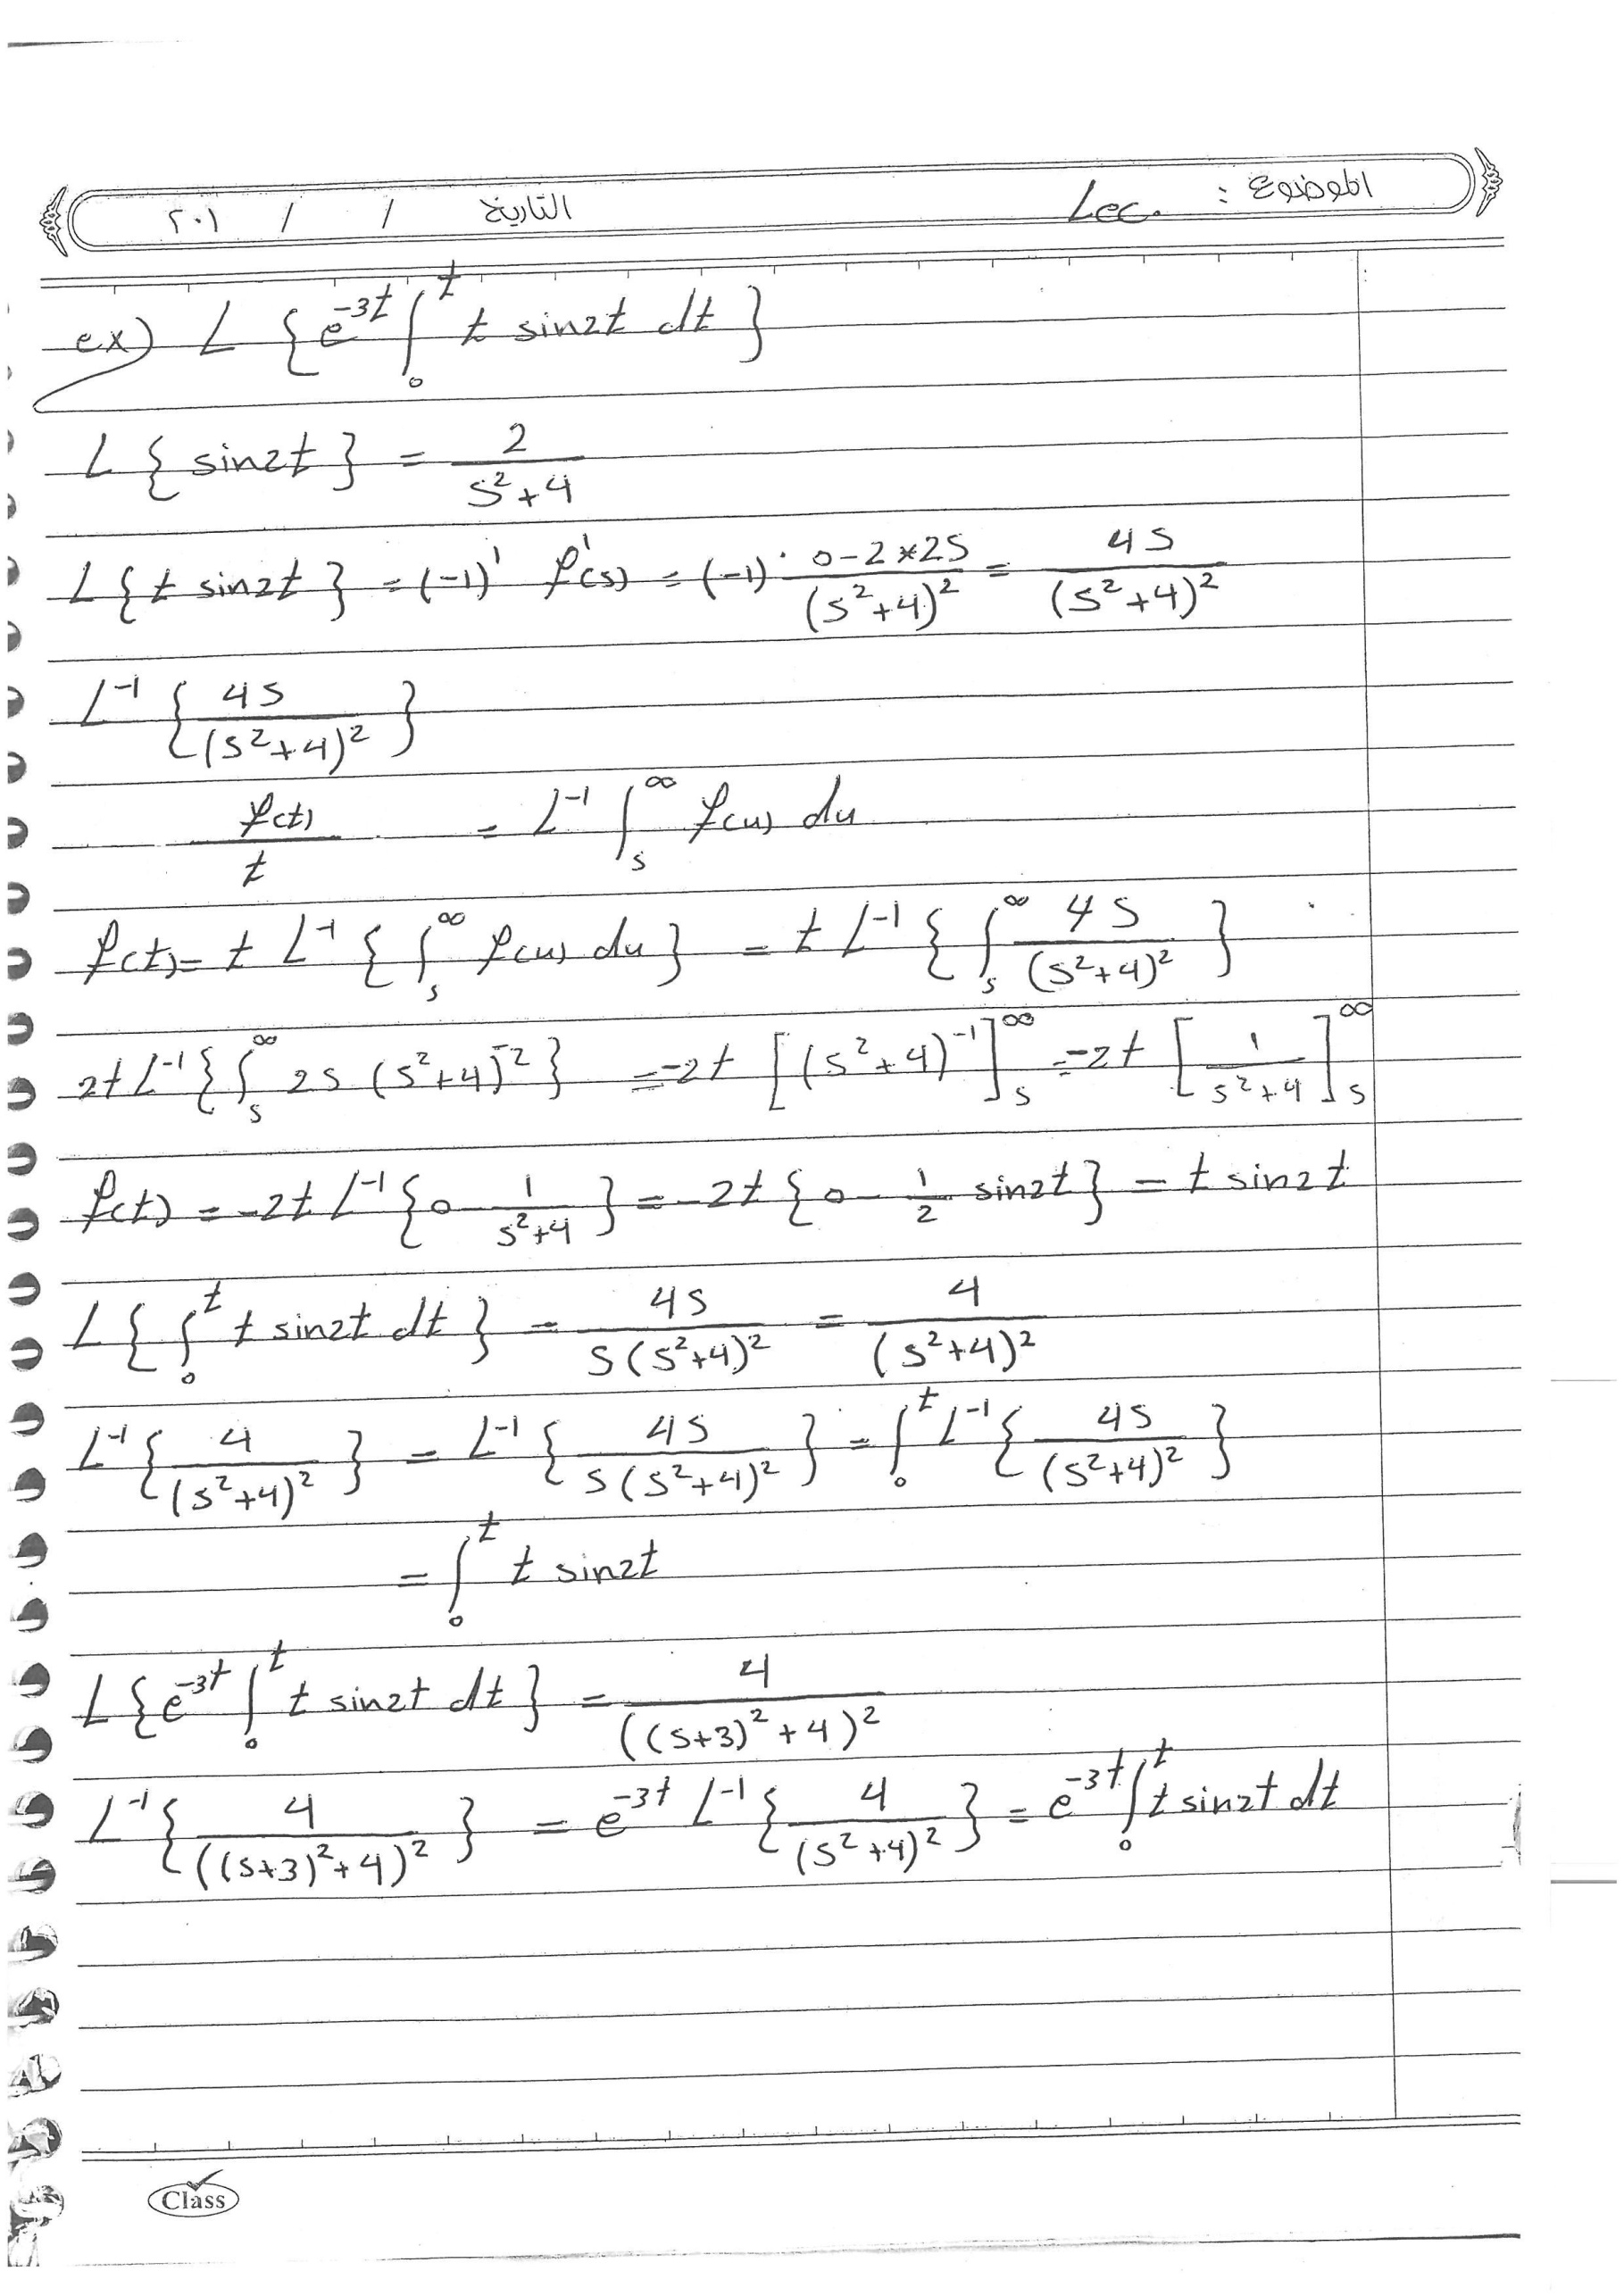 الموضوع : Lec. التاريخ / / ٢٠١
ex) L { e^{-3t} ∫_0^t t sin2t dt }
L { sin2t } = 2 / (s^2+4)
L { t sin2t } = (-1)^1 f'(s) = (-1) · (0-2*2s) / (s^2+4)^2 = 4s / (s^2+4)^2
L^{-1} { 4s / (s^2+4)^2 }
f(t) / t = L^{-1} ∫_s^∞ f(u) du
f(t) = t L^{-1} { ∫_s^∞ f(u) du } = t L^{-1} { ∫_s^∞ 4s / (s^2+4)^2 }
2t L^{-1} { ∫_s^∞ 2s (s^2+4)^{-2} } = -2t [ (s^2+4)^{-1} ]_s^∞ = -2t [ 1 / (s^2+4) ]_s^∞
f(t) = -2t L^{-1} { 0 - 1 / (s^2+4) } = -2t { 0 - 1/2 sin2t } = t sin2t
L { ∫_0^t t sin2t dt } = 4s / s(s^2+4)^2 = 4 / (s^2+4)^2
L^{-1} { 4 / (s^2+4)^2 } = L^{-1} { 4s / s(s^2+4)^2 } = ∫_0^t L^{-1} { 4s / (s^2+4)^2 }
= ∫_0^t t sin2t
L { e^{-3t} ∫_0^t t sin2t dt } = 4 / ((s+3)^2+4)^2
L^{-1} { 4 / ((s+3)^2+4)^2 } = e^{-3t} L^{-1} { 4 / (s^2+4)^2 } = e^{-3t} ∫_0^t t sin2t dt
Class